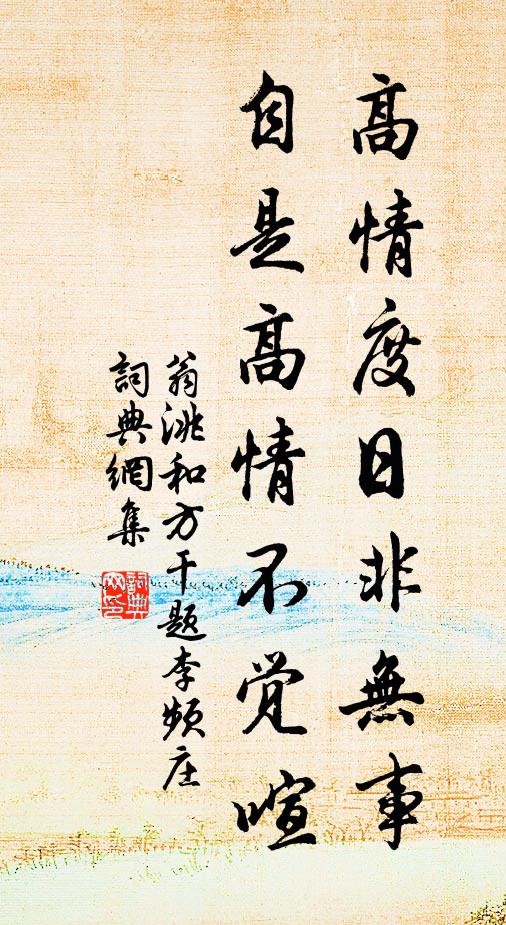 高情度日非無事
自是高情不觉喧
翁洮和方干题李频庄
詞典網集